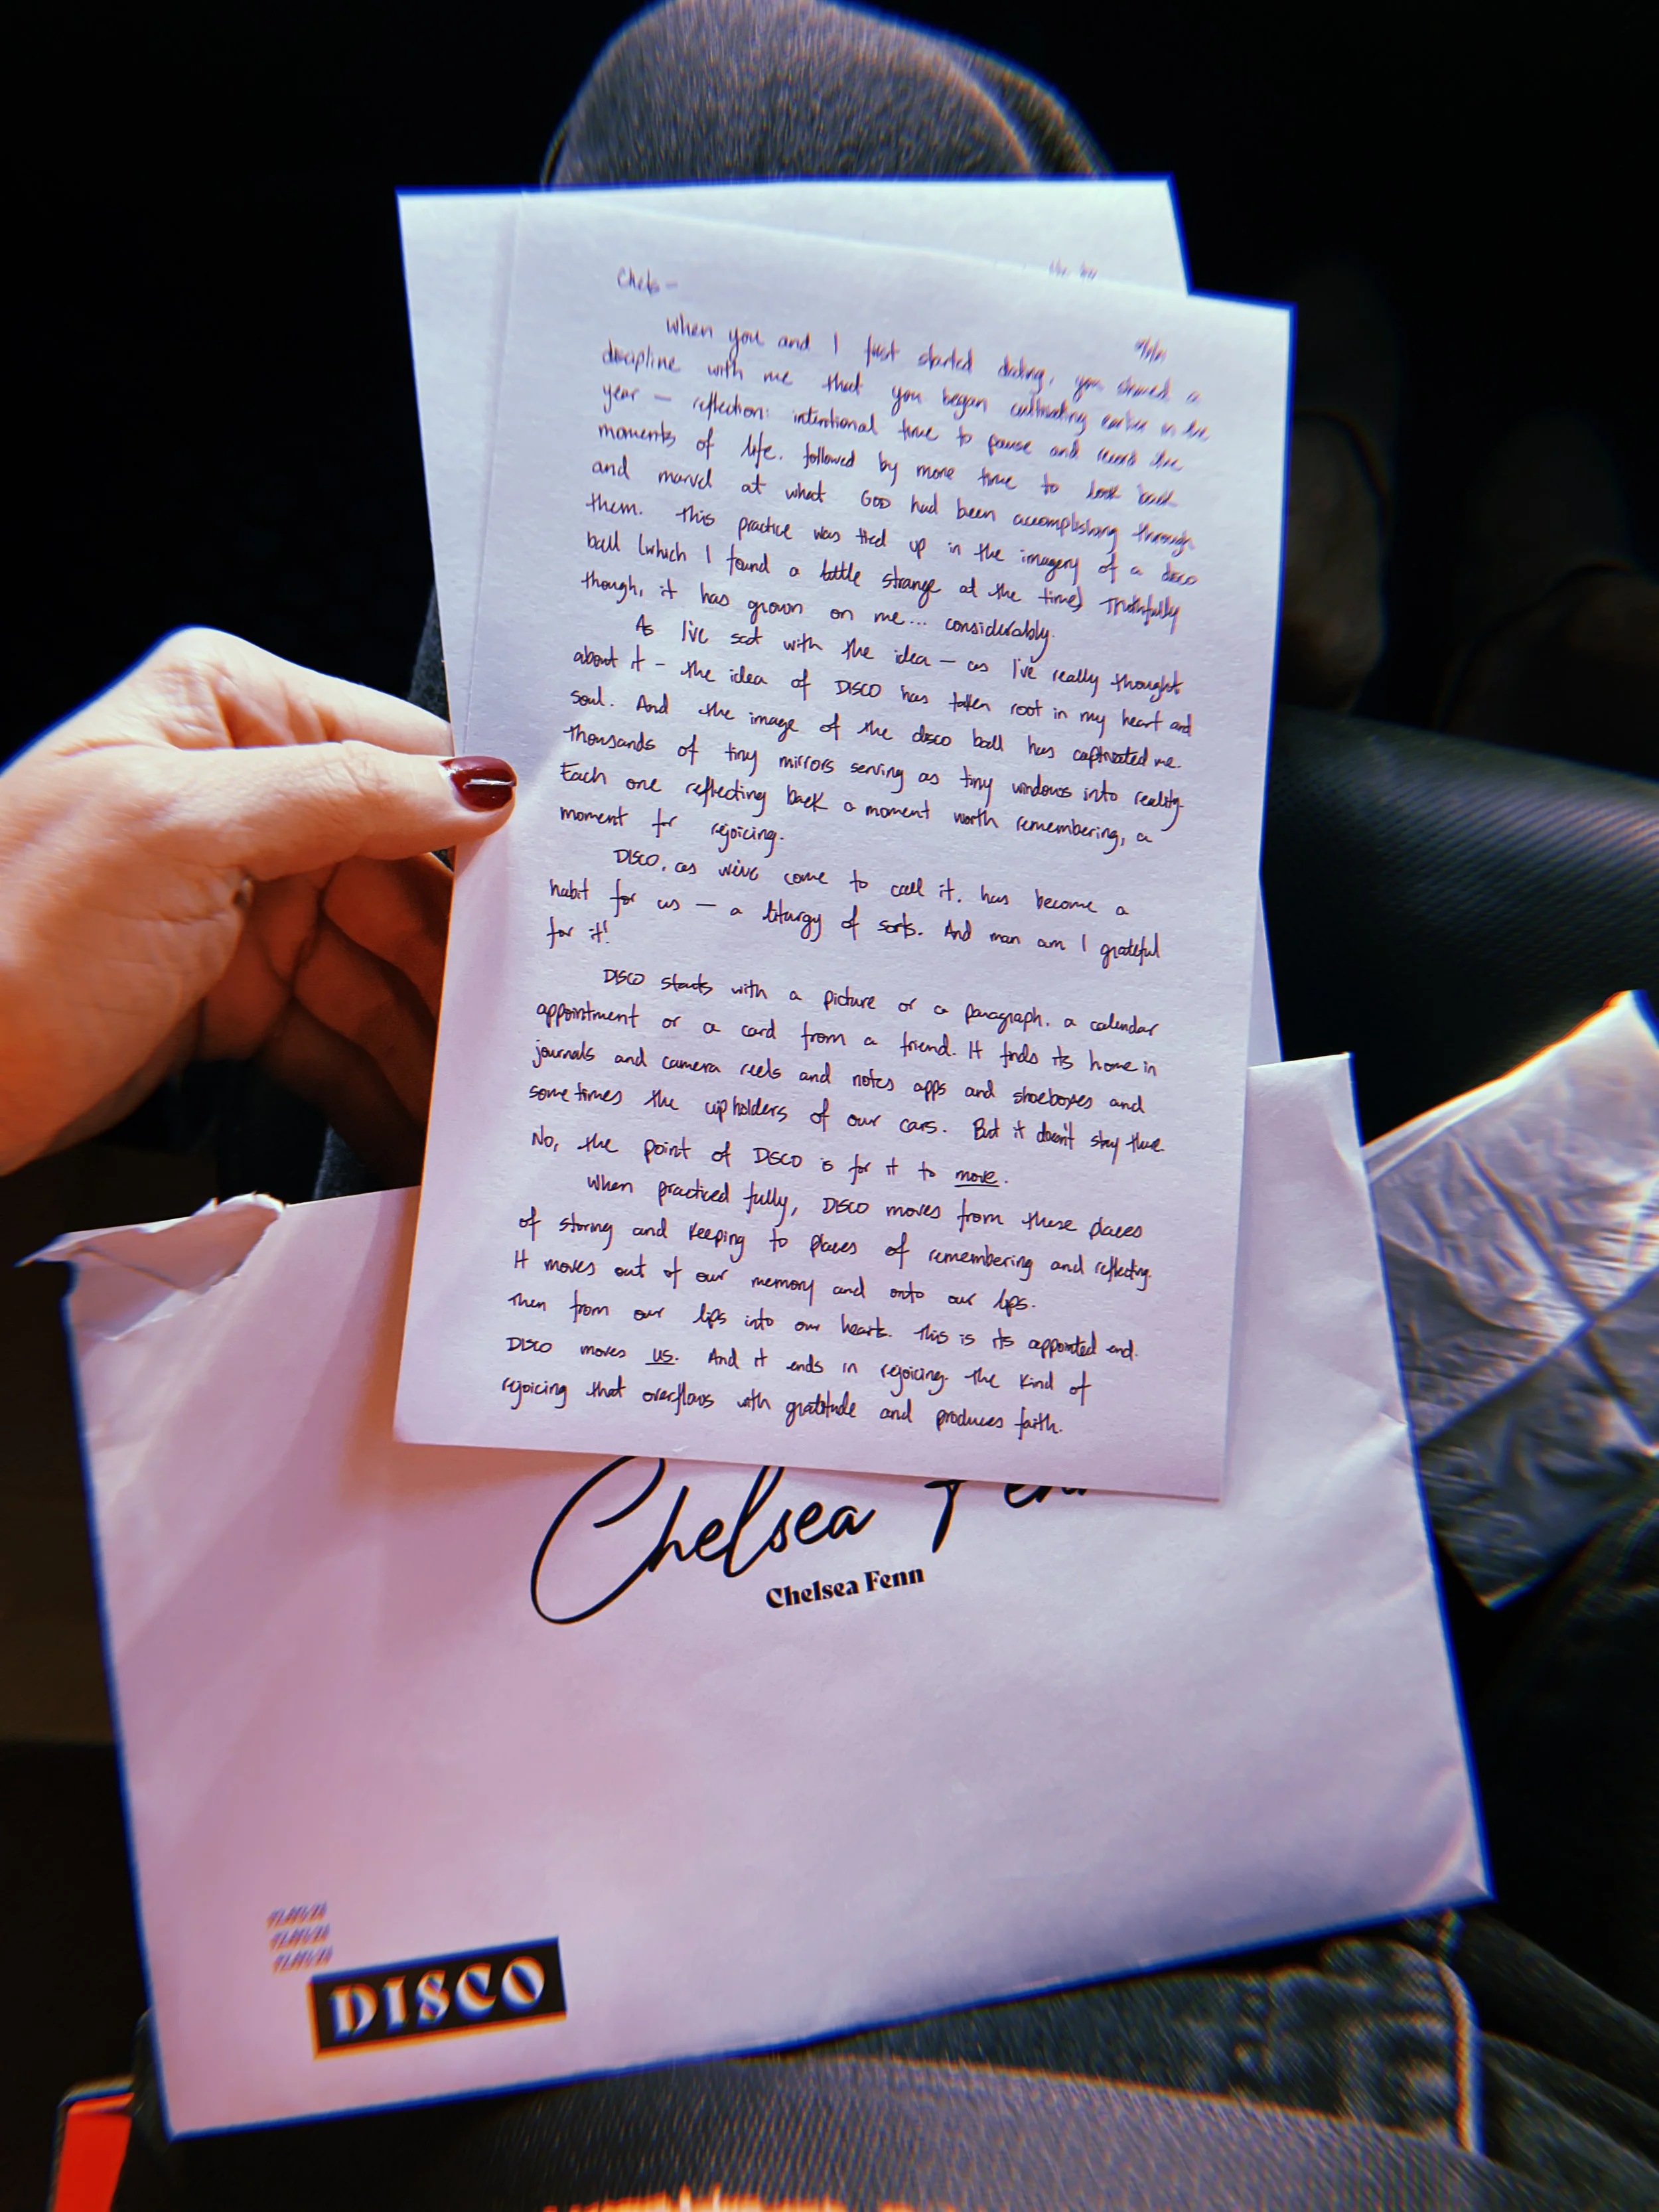 Chels —
When you and I first started dating, you shared a
discipline with me that you began cultivating earlier in the
year — reflection: intentional time to pause and the
moments of life. followed by more time to look back
and marvel at what GOD had been accomplishing through
them. This practice was tied up in the imagery of a disco
ball (which I found a little strange at the time) Truthfully
though, it has grown on me... considerably.
As I've sat with the idea — as I've really thought
about it — the idea of DISCO has taken root in my heart and
soul. And the image of the disco ball has captivated me.
Thousands of tiny mirrors serving as tiny windows into reality.
Each one reflecting back a moment worth remembering, a
moment for rejoicing.
DISCO, as we've come to call it, has become a
habit for us — a liturgy of sorts. And man am I grateful
for it!
DISCO starts with a picture or a paragraph. a calendar
appointment or a card from a friend. It finds its home in
journals and camera reels and notes apps and shoeboxes and
sometimes the cupholders of our cars. But it doesn't stay there.
No, the point of DISCO is for it to move.
When practiced fully, DISCO moves from these places
of storing and keeping to places of remembering and reflecting.
It moves out of our memory and onto our lips.
Then from our lips into our hearts. This is its appointed end.
DISCO moves us. And it ends in rejoicing. The kind of
rejoicing that overflows with gratitude and produces faith.
Chelsea Fenn
Chelsea Fenn
DISCO